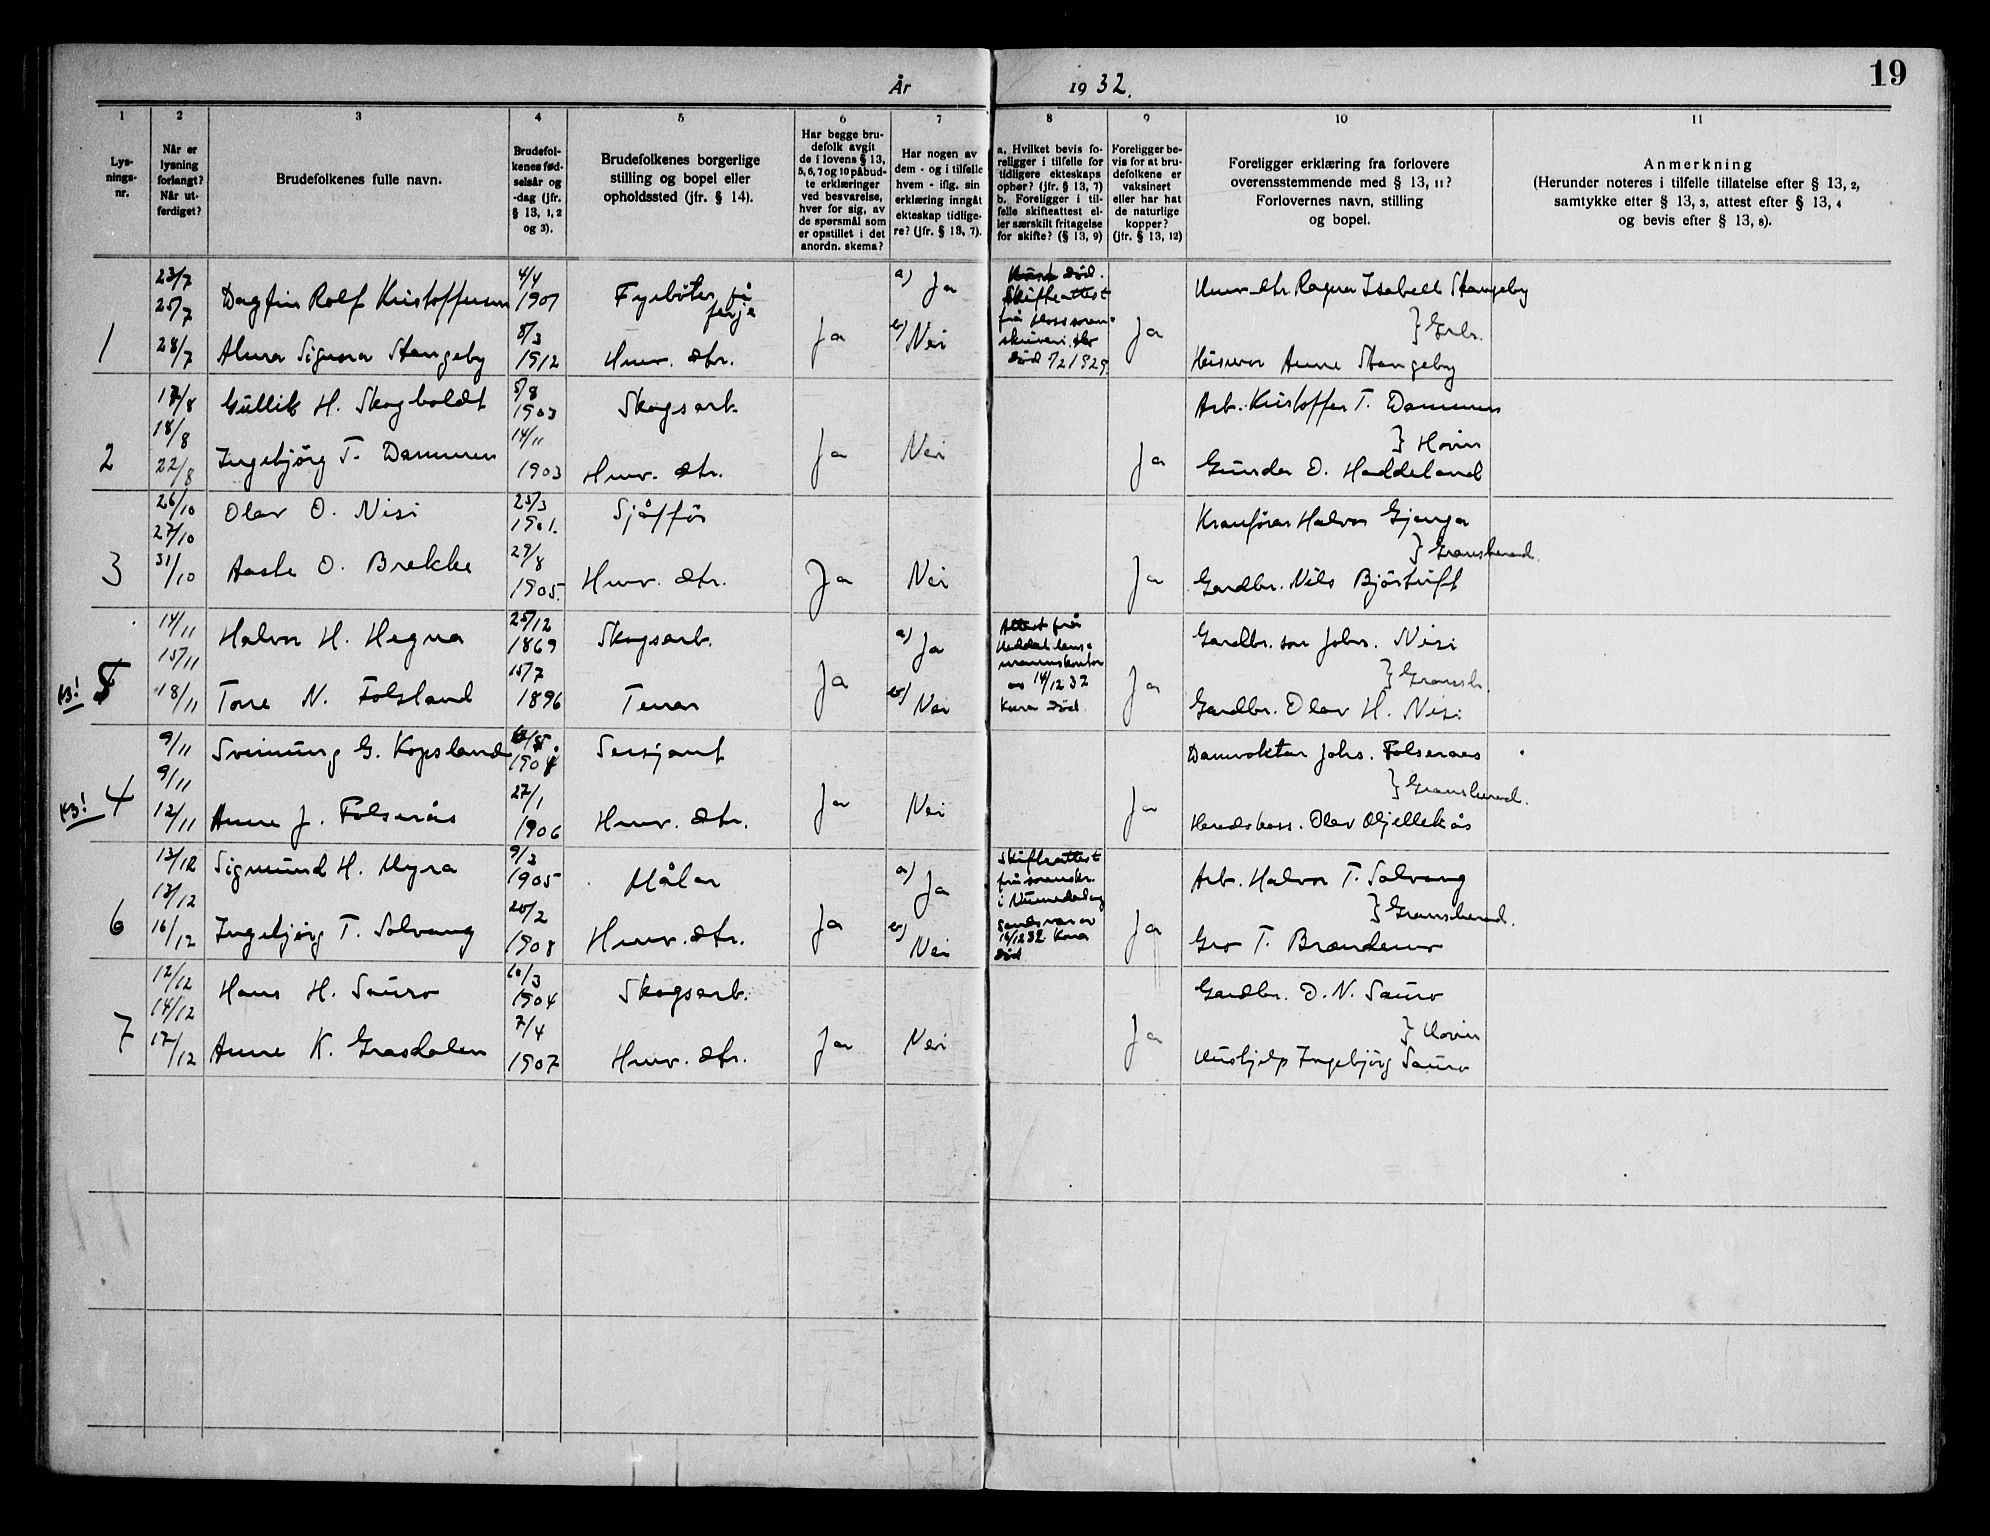 19
År 1932.
1 2 3 4 5 6 7 8 9 10 11
Lys-
nings-
nr.
Når er
lysning
forlangt?
Når ut-
ferdiget?
Brudefolkenes fulle navn.
Brudefol-
kenes fød-
selsår og
-dag (jfr.
§ 13, 1, 2
og 3).
Brudefolkenes borgerlige
stilling og bopel eller
opholdssted (jfr. § 14).
Har begge bru-
defolk avgit
de i lovens § 13,
5, 6, 7 og 10 påbud-
te erklæringer
ved besvarelse,
hver for sig, av
de spørsmål som
er opstillet i det
anordn. skema?
Har nogen av
dem - og i tilfelle
hvem - iflg. sin
erklæring inngått
ekteskap tidlige-
re? (jfr. § 13, 7).
a. Hvilket bevis fo-
religger i tilfelle for
tidligere ekteskaps
ophør? (jfr. § 13, 7)
b. Foreligger i til-
felle skifteattest el-
ler særskilt fritagelse
for skifte? (§ 13, 9)
Foreligger be-
vis for at bru-
defolkene er
vaksinert
eller har hat
de naturlige
kopper?
(jfr. § 13, 12)
Foreligger erklæring fra forlovere
overensstemmende med § 13, 11?
Forlovernes navn, stilling
og bopel.
Anmerkning
(Herunder noteres i tilfelle tillatelse efter § 13, 2,
samtykke efter § 13, 3, attest efter § 13, 4
og bevis efter § 13, 8).
1
23/7
25/7
28/7
Dagfin Rolf Kristoffersen
Alma Signora Stangeby
4/4
1907
8/3
1912
Fyrbøter på
ferje
Huv. dtr.
Ja
a) Ja
b) Nei
død.
Skifteattest
frå
død 7/2 1929.
Ja
Huv. dtr Ragna Isabell Stangeby
} Grbr.
Heisver Anne Stangeby
2
17/8
18/8
22/8
Gullik H. Skogboldt
Ingebjörg T. Dammen
5/8
1903
14/11
1903
Skogsarb.
Huv. dtr.
Ja
Nei
Ja
Arb. Kristoffer T. Dammen
} Hovin
Gunder O. Haddeland
3
26/10
27/10
31/10
Olav O. Nisi
Aaste O. Brekke
25/3
1901.
29/8
1905.
Sjåfför
Huv. dtr.
Ja
Nei
Ja
Kranförar Halvor Gjenga
} Gransherad.
Gardbr. Nils Bjørtuft
NB! 5
14/11
15/11
18/11
Halvor H. Hegna
Tone N. Folsland
25/12
1869
15/7
1896
Skogsarb.
Tenar
Ja
a) Ja
b) Nei
Attest frå
Heddal lens-
mannskontor
av 14/12 32
Kona død
Ja
Gardbr. son Johs. Nisi
} Gransh.
Gardbr. Olav H. Nisi
NB! 4
9/11
9/11
12/11
Sveinung G. Kopsland
Anne J. Folserås
1904
27/1
1906
Sersjant
Huv. dtr.
Ja
Nei
Ja
Damvoktar Johs. Folseraas
} Gransherad.
Heradskass. Olav Mjellekås
6
13/12
13/12
16/12
Sigmund H. Myra
Ingebjörg T. Solvang
9/3
1905
20/2
1908
Målar
Huv. dtr.
Ja
a) Ja
b) Nei
Skifteattest
frå sorenskr.
i Numedal og
Sandsvær av
16/12 32 Kona
død
Ja
Arb. Halvor T. Solvang
} Gransherad.
Gro T. Brændemo
7
12/12
14/12
17/12
Hans H. Sauro
Anne K. Grasdalen
10/3
1904
7/4
1907
Skogsarb.
Huv. dtr.
Ja
Nei
Ja
Gardbr. O. N. Sauro
} Hovin
Hushjelp Ingebjörg Sauro